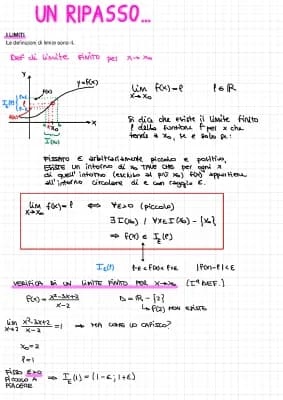 UN RIPASSO...
I LIMITI
Le definizioni di limite sono 4.
DEF di LIMITE FINITO per x→x₀
Y
y=f(x)
f(x)
x₀
x
I(x₀)
lim f(x)=ℓ ℓ∈ℝ
x→x₀
Si dice che esiste il limite finito
ℓ della funzione f per x che
tende a x₀, se e solo se:
FISSATO ε arbitrariamente piccolo e positivo,
ESISTE un intorno di x₀ TALE CHE per ogni x
di quell'intorno (escluso al più x₀) f(x) appartiene
all'intorno circolare di ℓ con raggio ε.
lim f(x)=ℓ ⟺ ∀ε>0 (piccolo)
x→x₀
∃I(x₀) / ∀x∈I(x₀)-{x₀}
⇒ f(x) ∈ I_ε(ℓ)
I_ε(ℓ) ℓ-ε<f(x)<ℓ+ε |f(x)-ℓ|<ε
VERIFICA DI UN LIMITE FINITO PER x→x₀ (1ª DEF.)
f(x)= x²-3x+2 / x-2 D=ℝ-{2}
↳f(2) NON ESISTE
lim x²-3x+2 / x-2 =1 → MA COME LO CAPISCO?
x→2
x₀=2
ℓ=1
FISSO ε>0
PICCOLO A
PIACERE
⇒ I_ε(1)=(1-ε;1+ε)